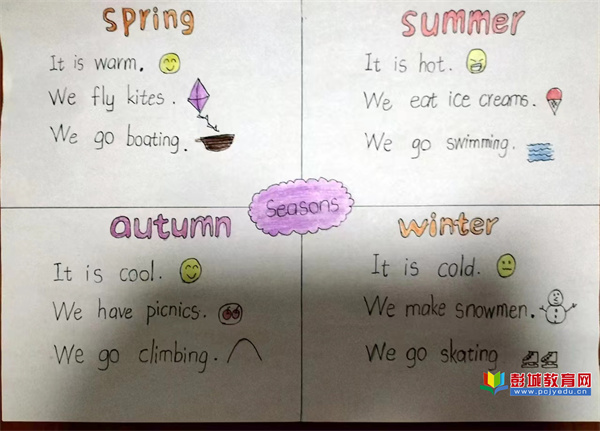 spring
It is warm.
We fly kites.
We go boating.
summer
It is hot.
We eat ice creams.
We go swimming.
Seasons
autumn
It is cool.
We have picnics.
We go climbing.
winter
It is cold.
We make snowmen.
We go skating
彭城教育网
www.pcjyedu.cn